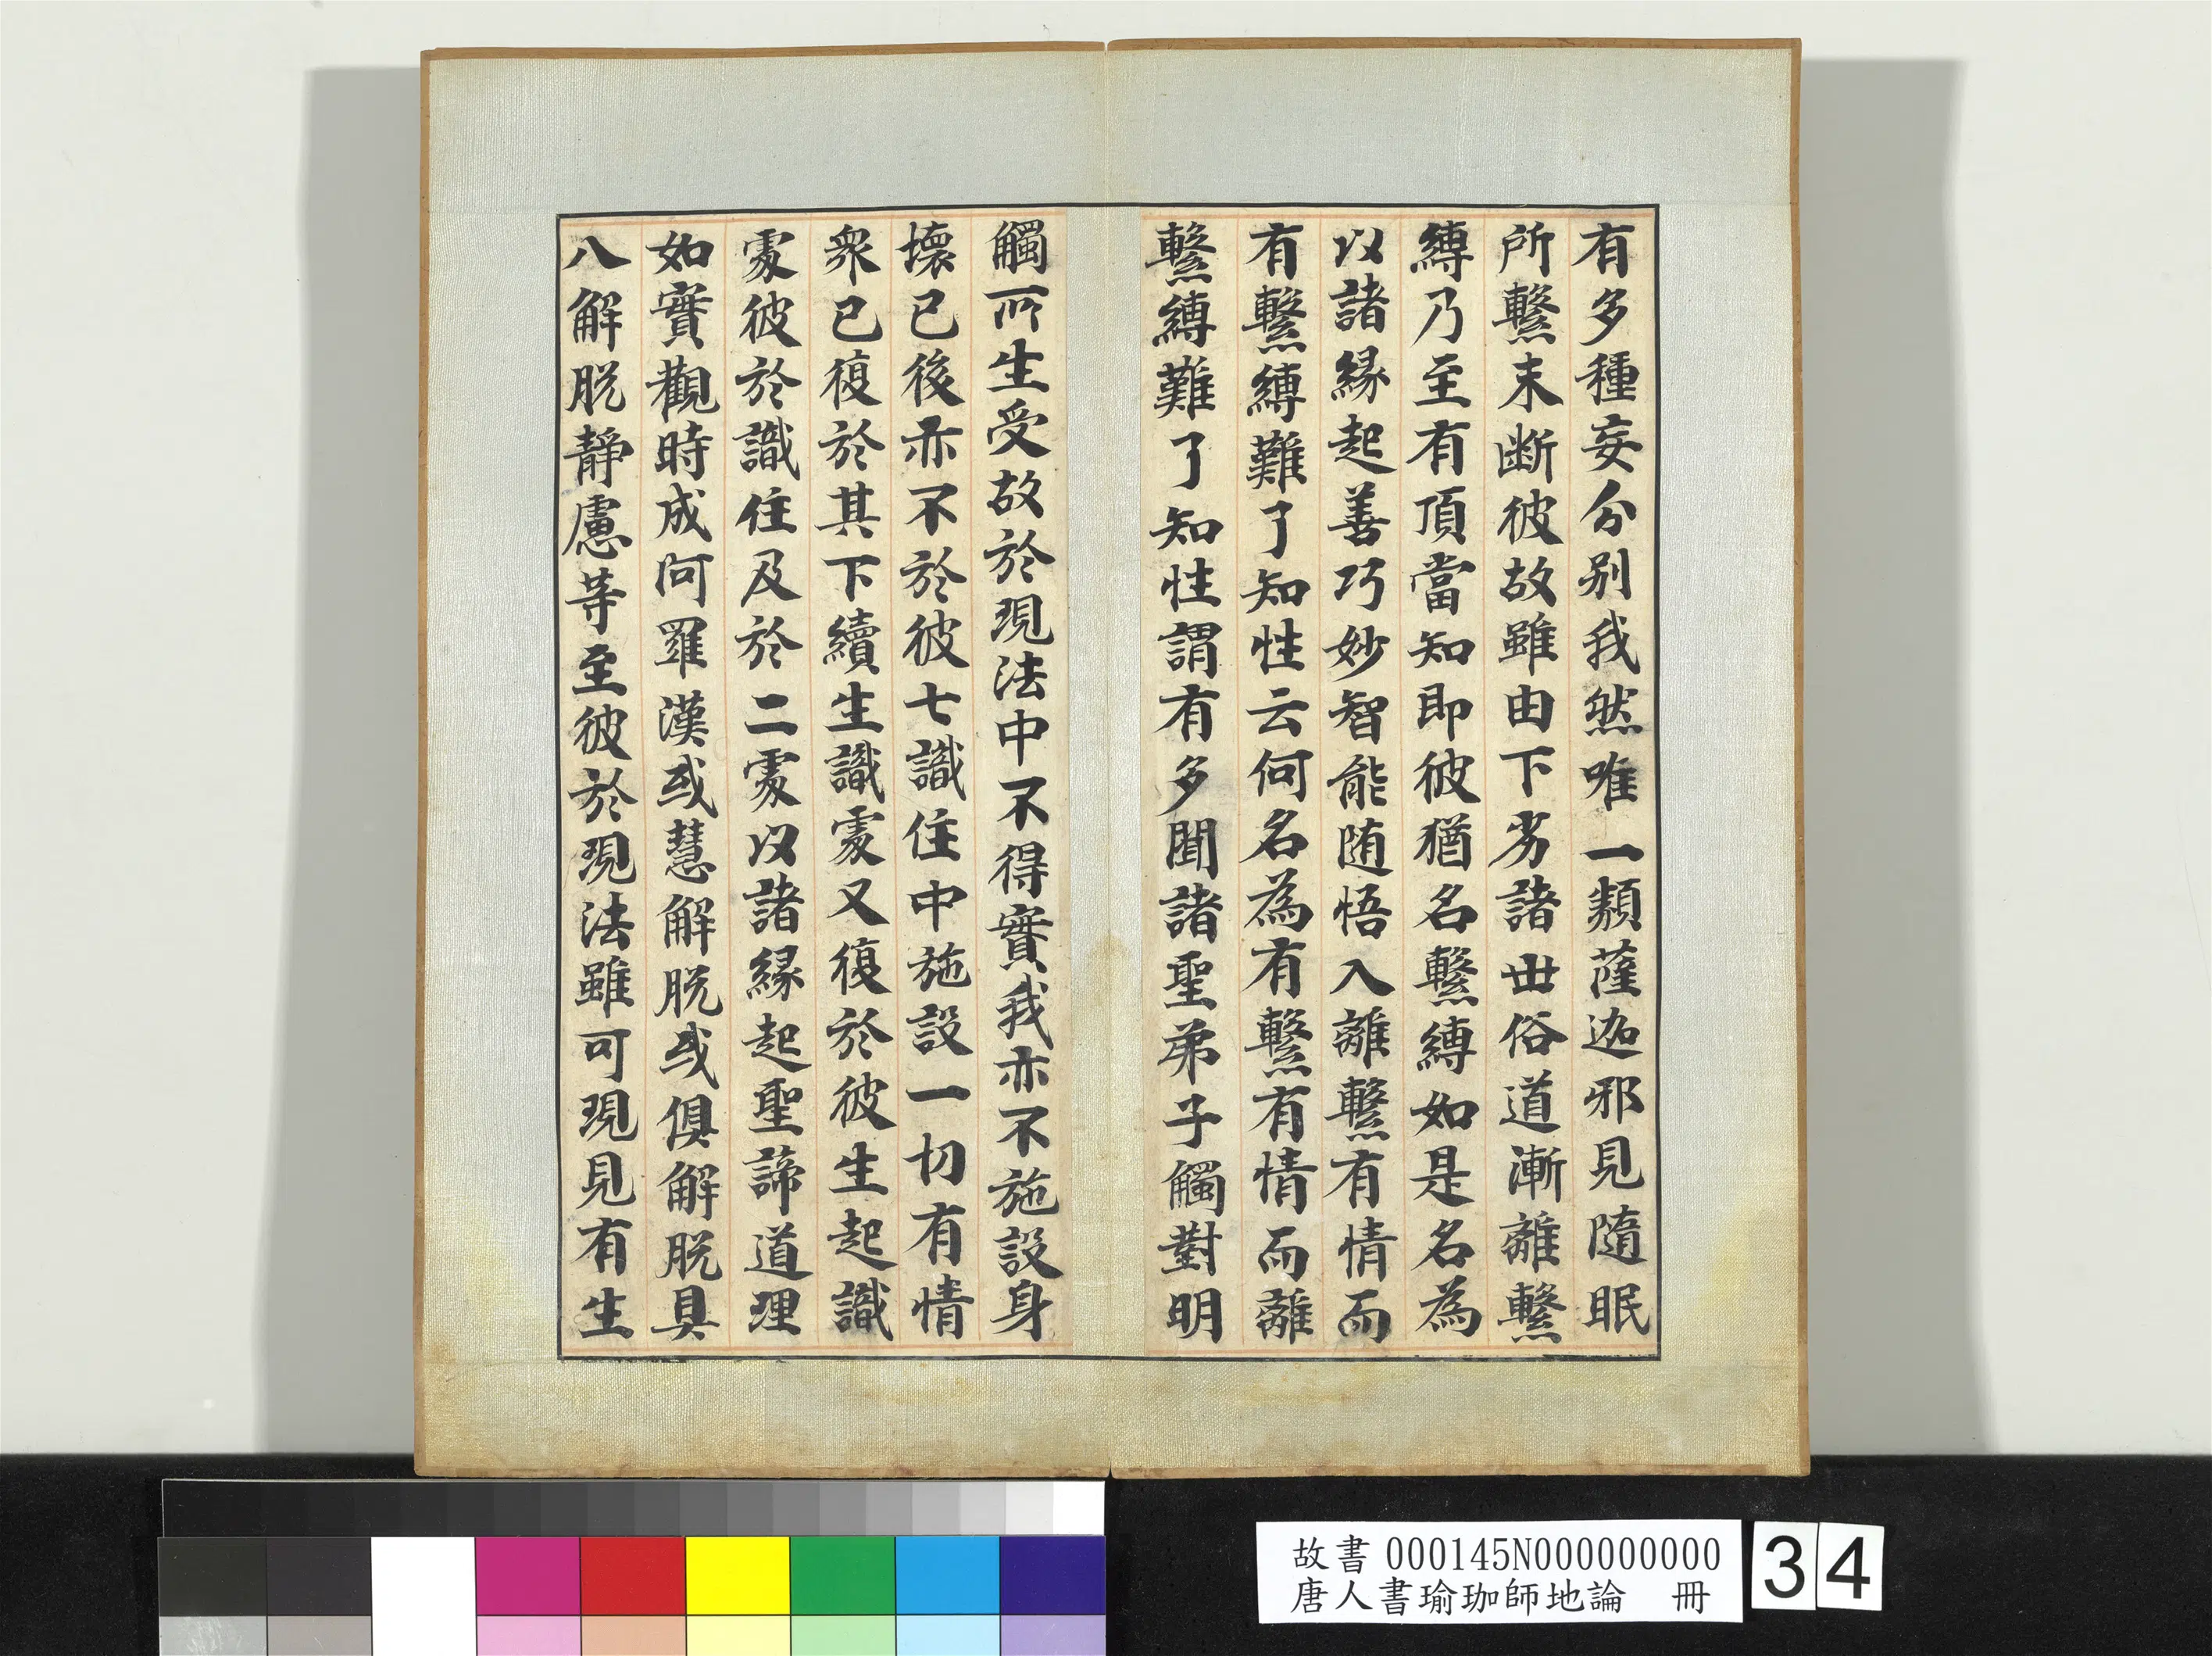 有多種妄分別我然唯一類薩迦邪見隨眠
所繫未断彼故雖由下劣諸世俗道漸離繫
縛乃至有頂當知即彼猶名繫縛如是名為
以諸緣起善巧妙智能随悟入離繫有情而
有繫縛難了知性云何名為有繫有情而離
繫縛難了知性謂有多聞諸聖弟子觸對明
觸所生受故於現法中不得實我亦不施設身
壞已後亦不於彼七識住中施設一切有情
衆已復於其下續生識處又復於彼生起識
處彼於識住及於二處以諸緣起聖諦道理
如實觀時成阿羅漢或慧解脫或俱解脫具
八解脫靜慮等至彼於現法雖可現見有生
故書 000145N000000000
唐人書瑜珈師地論 冊
34